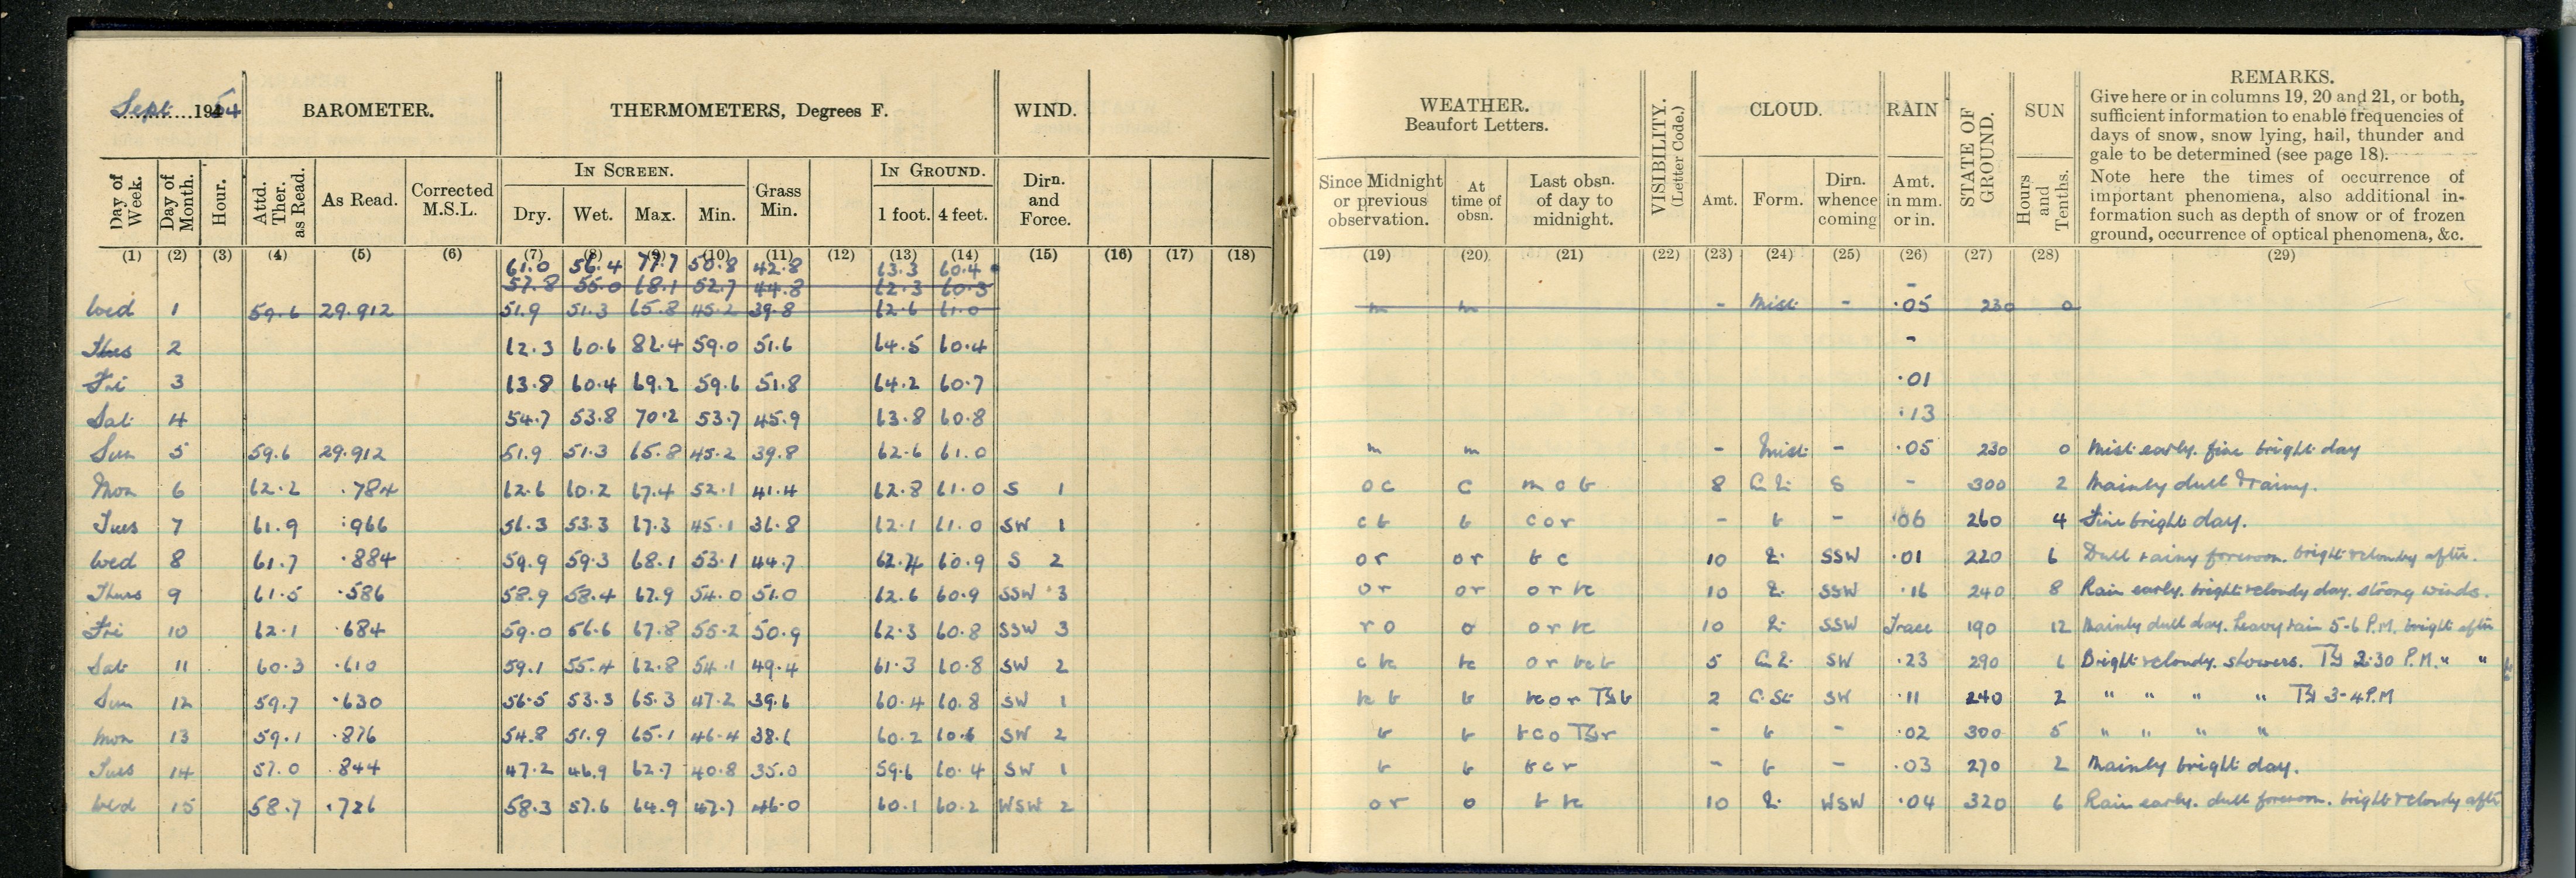 Sept 1954
BAROMETER.
THERMOMETERS, Degrees F.
WIND.
Day of Week.
Day of Month.
Hour.
Attd. Ther. as Read.
As Read.
Corrected M.S.L.
IN SCREEN.
Dry. Wet. Max. Min.
Grass Min.
IN GROUND.
1 foot. 4 feet.
Dirn. and Force.
(1) (2) (3) (4) (5) (6) (7) (8) (9) (10) (11) (12) (13) (14) (15) (16) (17) (18)
61.0 56.4 77.7 50.8 42.8 63.3 60.4
57.8 55.0 68.1 52.7 44.8 62.3 60.3
Wed 1 59.6 29.912 51.9 51.3 65.8 45.2 39.8 62.6 61.0
Thurs 2 62.3 60.6 82.4 59.0 51.6 64.5 60.4
Fri 3 63.8 60.4 69.2 59.6 51.8 64.2 60.7
Sat 4 54.7 53.8 70.2 53.7 45.9 63.8 60.8
Sun 5 59.6 29.912 51.9 51.3 65.8 45.2 39.8 62.6 61.0
Mon 6 62.2 .784 62.6 60.2 67.4 52.1 41.4 62.8 61.0 S 1
Tues 7 61.9 .966 56.3 53.3 67.3 45.1 36.8 62.1 61.0 SW 1
Wed 8 61.7 .884 59.9 59.3 68.1 53.1 44.7 62.4 60.9 S 2
Thurs 9 61.5 .586 58.9 58.4 67.9 54.0 51.0 62.6 60.9 SSW 3
Fri 10 62.1 .684 59.0 56.6 67.8 55.2 50.9 62.3 60.8 SSW 3
Sat 11 60.3 .610 59.1 55.4 62.8 54.1 49.4 61.3 60.8 SW 2
Sun 12 59.7 .630 56.5 53.3 65.3 47.2 39.6 60.4 60.8 SW 1
Mon 13 59.1 .876 54.8 51.9 65.1 46.4 38.6 60.2 60.6 SW 2
Tues 14 57.0 .844 47.2 46.9 62.7 40.8 35.0 59.6 60.4 SW 1
Wed 15 58.7 .726 58.3 57.6 64.9 47.7 46.0 60.1 60.2 WSW 2
WEATHER.
Beaufort Letters.
VISIBILITY.
(Letter Code.)
CLOUD.
RAIN
STATE OF GROUND.
SUN
REMARKS.
Give here or in columns 19, 20 and 21, or both,
sufficient information to enable frequencies of
days of snow, snow lying, hail, thunder and
gale to be determined (see page 18).
Note here the times of occurrence of
important phenomena, also additional in-
formation such as depth of snow or of frozen
ground, occurrence of optical phenomena, &c.
Since Midnight or previous observation.
At time of obsn.
Last obsn. of day to midnight.
Amt. Form.
Dirn. whence coming
Amt. in mm. or in.
Hours and Tenths.
(19) (20) (21) (22) (23) (24) (25) (26) (27) (28) (29)
-
m m - Mist - .05 230 0
-
.01
.13
m m - Mist - .05 230 0 Mist early. fine bright day
oc c m o b 8 S - 300 2 Mainly dull & rainy.
c b b c o r - b - .06 260 4 Fine bright day.
or or b c 10 SSW .01 220 6 Dull rainy forenoon. bright & cloudy after.
or or o r bc 10 SSW .16 240 8 Rain early. bright & cloudy day. strong winds.
r o o o r bc 10 SSW Trace 190 12 Mainly dull day. heavy rain 5-6 P.M. bright after
c bc bc o r bc b 5 SW .23 290 6 Bright & cloudy. showers. 2.30 P.M. " "
bc b b bc o r b 2 C. St SW .11 240 2 " " " " 3-4 P.M
b b b c o r - b - .02 300 5 " " " "
b b b c r - b - .03 270 2 Mainly bright day.
or o b bc 10 WSW .04 320 6 Rain early. dull forenoon. bright & cloudy after